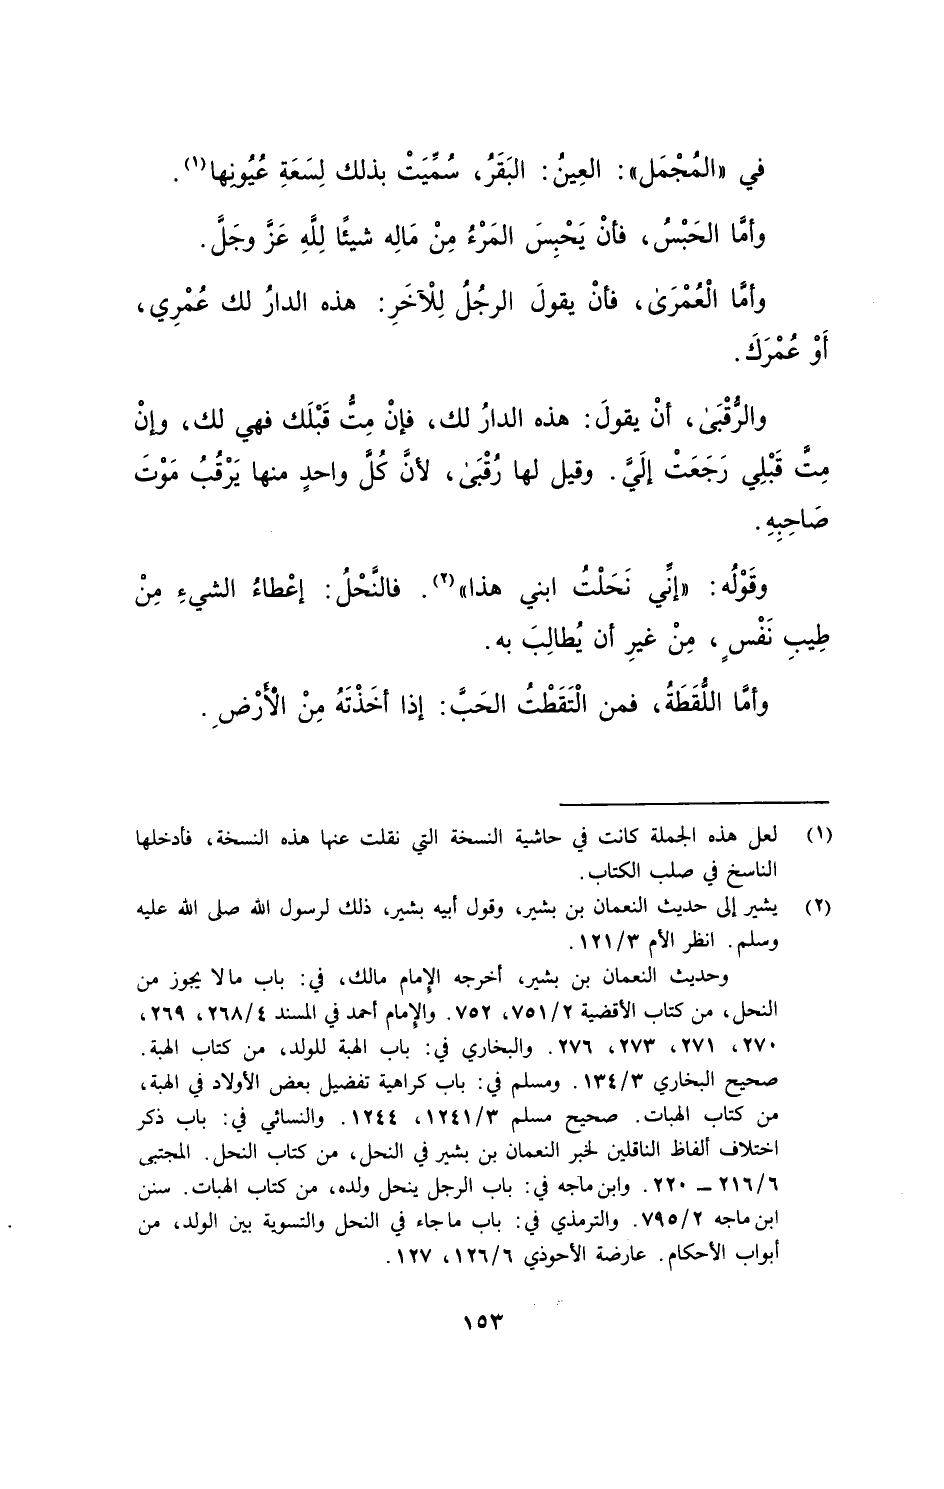 في «المُجْمَل»: العِينُ: البَقَرُ، سُمِّيَتْ بذلك لِسَعَةِ عُيُونِها(١).
وأمَّا الحَبْسُ، فأنْ يَحْبِسَ المَرْءُ مِنْ مَالِه شيئًا لِلَّهِ عَزَّ وجَلَّ.
وأمَّا الْعُمْرَىٰ، فأنْ يقولَ الرجُلُ لِلْآخَرِ: هذه الدارُ لك عُمْرِي،
أَوْ عُمْرَكَ.
والرُّقْبَىٰ، أنْ يقولَ: هذه الدارُ لك، فإنْ مِتُّ قَبْلَك فهي لك، وإنْ
مِتَّ قَبْلِي رَجَعَتْ إلَيَّ. وقيل لها رُقْبَىٰ، لأنَّ كُلَّ واحدٍ منها يَرْقُبُ مَوْتَ
صَاحِبِهِ.
وقَوْلُه: «إنِّي نَحَلْتُ ابني هذا»(٢). فالنَّحْلُ: إعْطاءُ الشيءِ مِنْ
طِيبِ نَفْسٍ، مِنْ غيرِ أن يُطالِبَ به.
وأمَّا اللُّقَطَةُ، فمن الْتَقَطْتُ الحَبَّ: إذا أخَذْتَهُ مِنْ الْأَرْضِ.
(١) لعل هذه الجملة كانت في حاشية النسخة التي نقلت عنها هذه النسخة، فأدخلها
الناسخ في صلب الكتاب.
(٢) يشير إلى حديث النعمان بن بشير، وقول أبيه بشير، ذلك لرسول الله صلى الله عليه
وسلم. انظر الأم ١٢١/٣.
وحديث النعمان بن بشير، أخرجه الإمام مالك، في: باب مالا يجوز من
النحل، من كتاب الأقضية ٧٥١/٢، ٧٥٢. والإمام أحمد في المسند ٢٦٨/٤، ٢٦٩،
٢٧٠، ٢٧١، ٢٧٣، ٢٧٦. والبخاري في: باب الهبة للولد، من كتاب الهبة.
صحيح البخاري ١٣٤/٣. ومسلم في: باب كراهية تفضيل بعض الأولاد في الهبة،
من كتاب الهبات. صحيح مسلم ١٢٤١/٣، ١٢٤٤. والنسائي في: باب ذكر
اختلاف ألفاظ الناقلين لخبر النعمان بن بشير في النحل، من كتاب النحل. المجتبى
٢١٦/٦ ــ ٢٢٠. وابن ماجه في: باب الرجل ينحل ولده، من كتاب الهبات. سنن
ابن ماجه ٧٩٥/٢. والترمذي في: باب ماجاء في النحل والتسوية بين الولد، من
أبواب الأحكام. عارضة الأحوذي ١٢٦/٦، ١٢٧.
١٥٣